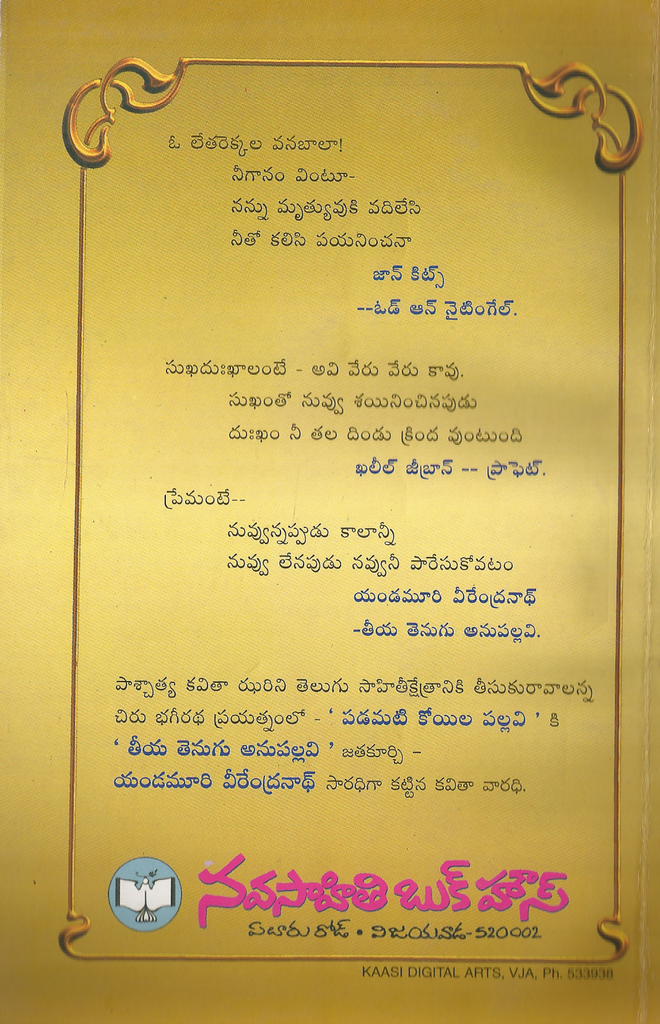 ఓ లేతరెక్కల వనబాలా!
నీగానం వింటూ-
నన్ను మృత్యువుకి వదిలేసి
నీతో కలిసి పయనించనా
జాన్ కీట్స్
--ఓడ్ ఆన్ నైటింగేల్.
సుఖదుఃఖాలంటే - అవి వేరు వేరు కావు.
సుఖంతో నువ్వు శయినించినపుడు
దుఃఖం నీ తల దిండు క్రింద వుంటుంది
ఖలీల్ జీబ్రాన్ -- ప్రాఫెట్.
ప్రేమంటే--
నువ్వున్నప్పుడు కాలాన్నీ
నువ్వు లేనపుడు నవ్వునీ పారేసుకోవటం
యండమూరి వీరేంద్రనాథ్
-తీయ తెనుగు అనుపల్లవి.
పాశ్చాత్య కవితా ఝరిని తెలుగు సాహితీక్షేత్రానికి తీసుకురావాలన్న
చిరు భగీరథ ప్రయత్నంలో - ‘ పడమటి కోయిల పల్లవి ’ కి
‘ తీయ తెనుగు అనుపల్లవి ’ జతకూర్చి –
యండమూరి వీరేంద్రనాథ్ సారధిగా కట్టిన కవితా వారధి.
నవసాహితి బుక్ హౌస్
ఏలూరు రోడ్ • విజయవాడ-520002
KAASI DIGITAL ARTS, VJA, Ph. 533938